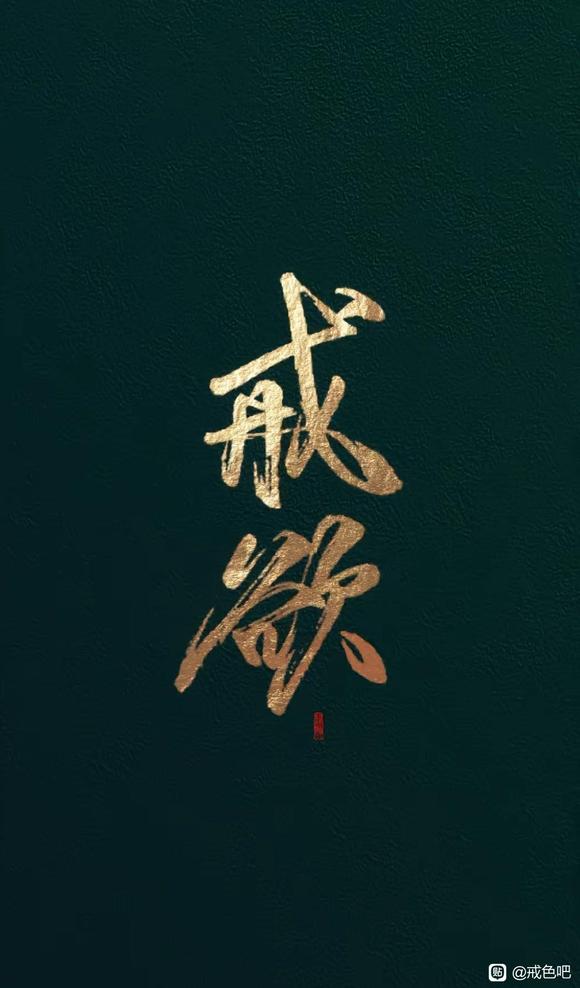 戒
欲
贴 @戒色吧